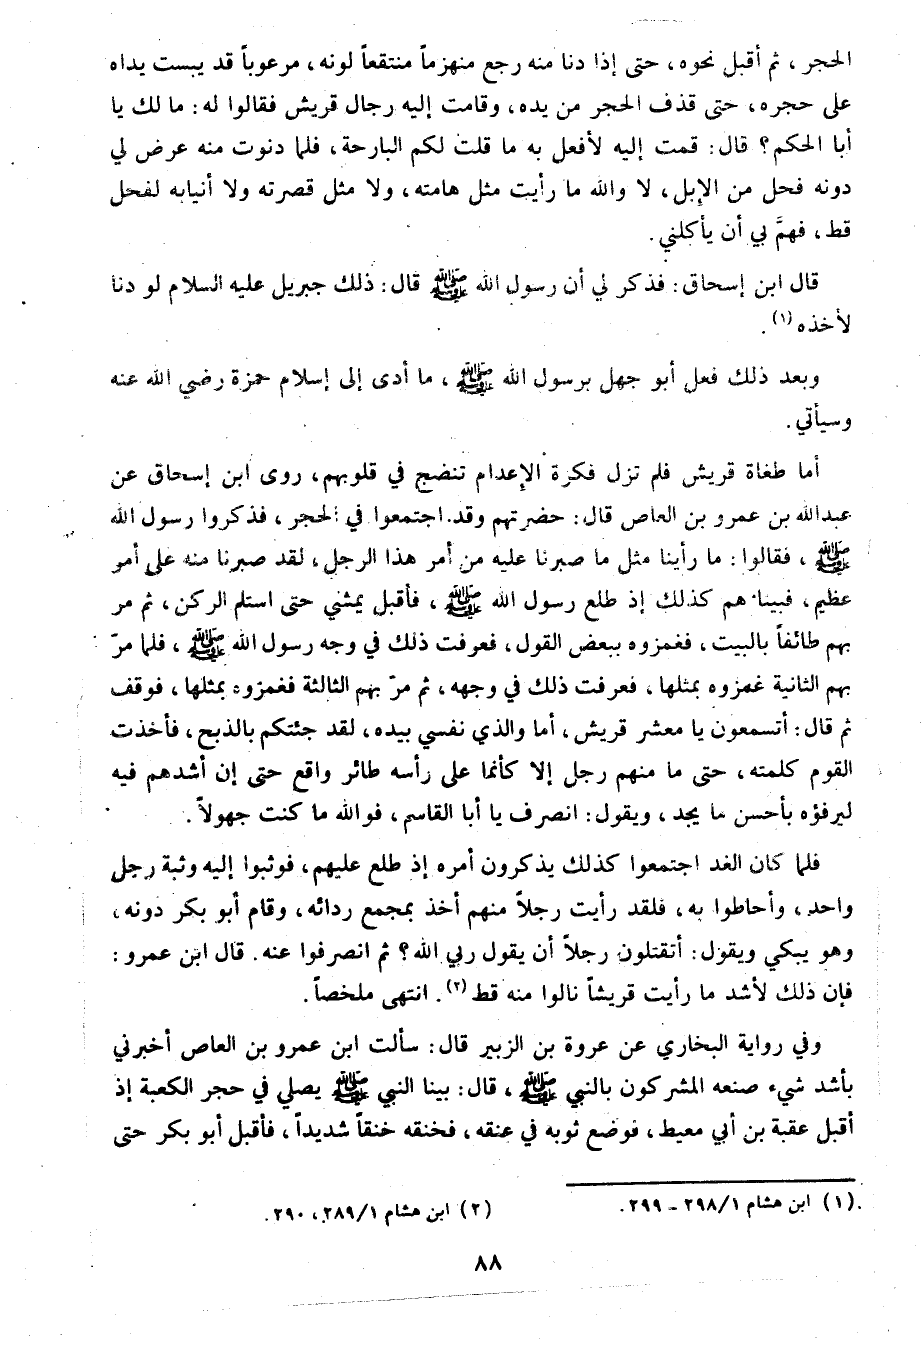 الحجر، ثم أقبل نحوه، حتى إذا دنا منه رجع منهزماً منتقعاً لونه، مرعوباً قد يبست يداه
على حجره، حتى قذف الحجر من يده، وقامت إليه رجال قريش فقالوا له: ما لك يا
أبا الحكم؟ قال: قمت إليه لأفعل به ما قلت لكم البارحة، فلما دنوت منه عرض لي
دونه فحل من الإبل، لا والله ما رأيت مثل هامته، ولا مثل قصرته ولا أنيابه لفحل
قط، فهمَّ بي أن يأكلني.
قال ابن إسحاق: فذكر لي أن رسول الله ﷺ قال: ذلك جبريل عليه السلام لو دنا
لأخذه (١).
وبعد ذلك فعل أبو جهل برسول الله ﷺ، ما أدى إلى إسلام حمزة رضي الله عنه
وسيأتي.
أما طغاة قريش فلم تزل فكرة الإعدام تنضج في قلوبهم، روى ابن إسحاق عن
عبدالله بن عمرو بن العاص قال: حضرتهم وقد اجتمعوا في الحجر، فذكروا رسول الله
ﷺ، فقالوا: ما رأينا مثل ما صبرنا عليه من أمر هذا الرجل، لقد صبرنا منه على أمر
عظيم، فبينا هم كذلك إذ طلع رسول الله ﷺ، فأقبل يمشي حتى استلم الركن، ثم مر
بهم طائفاً بالبيت، فغمزوه ببعض القول، فعرفت ذلك في وجه رسول الله ﷺ، فلما مرّ
بهم الثانية غمزوه بمثلها، فعرفت ذلك في وجهه، ثم مرّ بهم الثالثة فغمزوه بمثلها، فوقف
ثم قال: أتسمعون يا معشر قريش، أما والذي نفسي بيده، لقد جئتكم بالذبح، فأخذت
القوم كلمته، حتى ما منهم رجل إلا كأنما على رأسه طائر واقع حتى إن أشدهم فيه
ليرفؤه بأحسن ما يجد، ويقول: انصرف يا أبا القاسم، فوالله ما كنت جهولاً.
فلما كان الغد اجتمعوا كذلك يذكرون أمره إذ طلع عليهم، فوثبوا إليه وثبة رجل
واحد، وأحاطوا به، فلقد رأيت رجلاً منهم أخذ بمجمع ردائه، وقام أبو بكر دونه،
وهو يبكي ويقول: أتقتلون رجلاً أن يقول ربي الله؟ ثم انصرفوا عنه. قال ابن عمرو:
فإن ذلك لأشد ما رأيت قريشاً نالوا منه قط (٢). انتهى ملخصاً.
وفي رواية البخاري عن عروة بن الزبير قال: سألت ابن عمرو بن العاص أخبرني
بأشد شيء صنعه المشركون بالنبي ﷺ، قال: بينا النبي ﷺ يصلي في حجر الكعبة إذ
أقبل عقبة بن أبي معيط، فوضع ثوبه في عنقه، فخنقه خنقاً شديداً، فأقبل أبو بكر حتى
(١) ابن هشام ٢٩٨/١ ـ ٢٩٩.
(٢) ابن هشام ٢٨٩/١، ٢٩٠.
٨٨